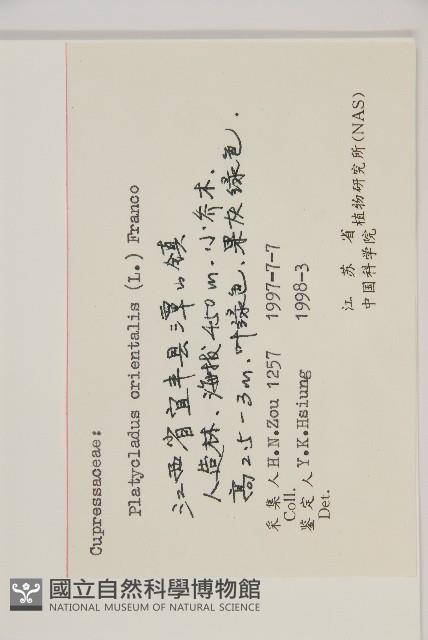 Cupressaceae:
Platycladus orientalis (L.) Franco
江西省宜丰县潭山镇
人造林、海拔450m.小乔木.
高2.5-3m.叶绿色、果灰绿色.
采集人 H.N.Zou 1257 1997-7-7
Coll.
鉴定人 Y.K.Hsiung 1998-3
Det.
江苏省植物研究所(NAS)
中国科学院
國立自然科學博物館
NATIONAL MUSEUM OF NATURAL SCIENCE